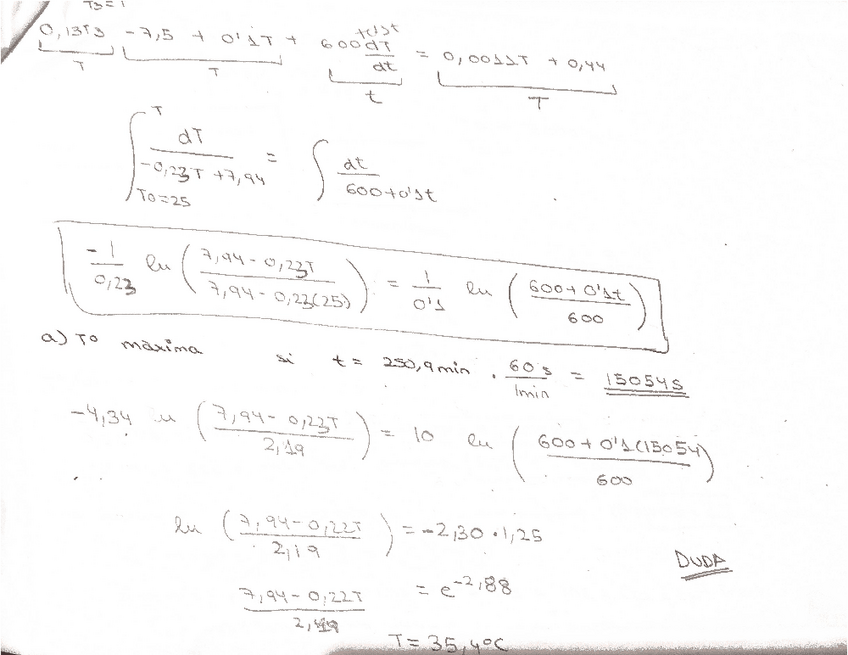 T3 = 1
0,13T3 - 7,5 + 0'1T + 600 dT/dt = 0,0011T + 0,44
T T t T
∫ T T0=25 dT / -0,23T + 7,94 = ∫ dt / 600+0'1t
-1/0,23 ln (7,94 - 0,23T / 7,94 - 0,23(25)) = 1/0'1 ln (600 + 0'1t / 600)
a) Tº máxima si t = 250,9min . 60 s / 1min = 15054s
-4,34 ln (7,94 - 0,23T / 2,19) = 10 ln (600 + 0'1(15054) / 600)
ln (7,94 - 0,22T / 2,19) = -2,30 · 1,25
DUDA
7,94 - 0,22T / 2,19 = e^-2,88
T = 35,4ºC